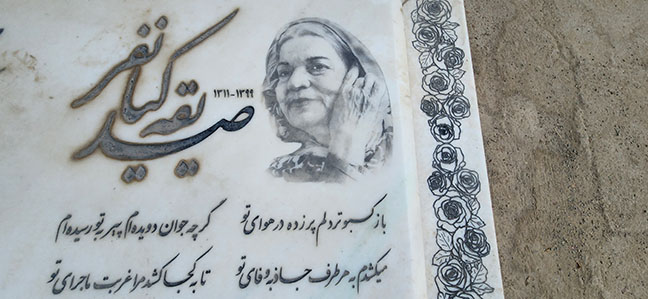 صدیقه کیانفر
۱۳۱۱-۱۳۹۹
باز کبوتر دلم پر زده در هوای تو گرچه جوان دویده‌ام پیر به تو رسیده‌ام
میکشدم به هر طرف جاذبه وفای تو تا به کجا کشد مرا غربت ماجرای تو